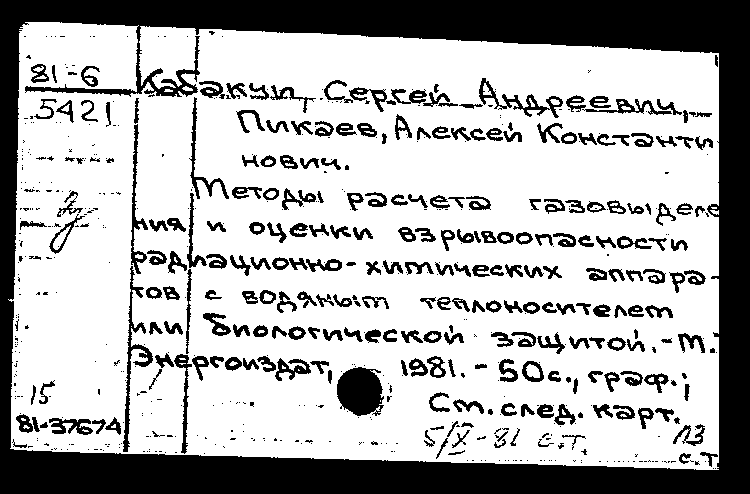 81-6
5421
Кабакчи, Сергей Андреевич,
Пикаев, Алексей Константи
нович.
Методы расчета газовыделе
ния и оценки взрывоопасности
радиационно-химических аппара-
тов с водяным теплоносителем
или биологической защитой.-М.:
Энергоиздат, 1981.-50с., граф.;
См. след. карт.
15
81-37674
5/X-81 с.т.
с.т.